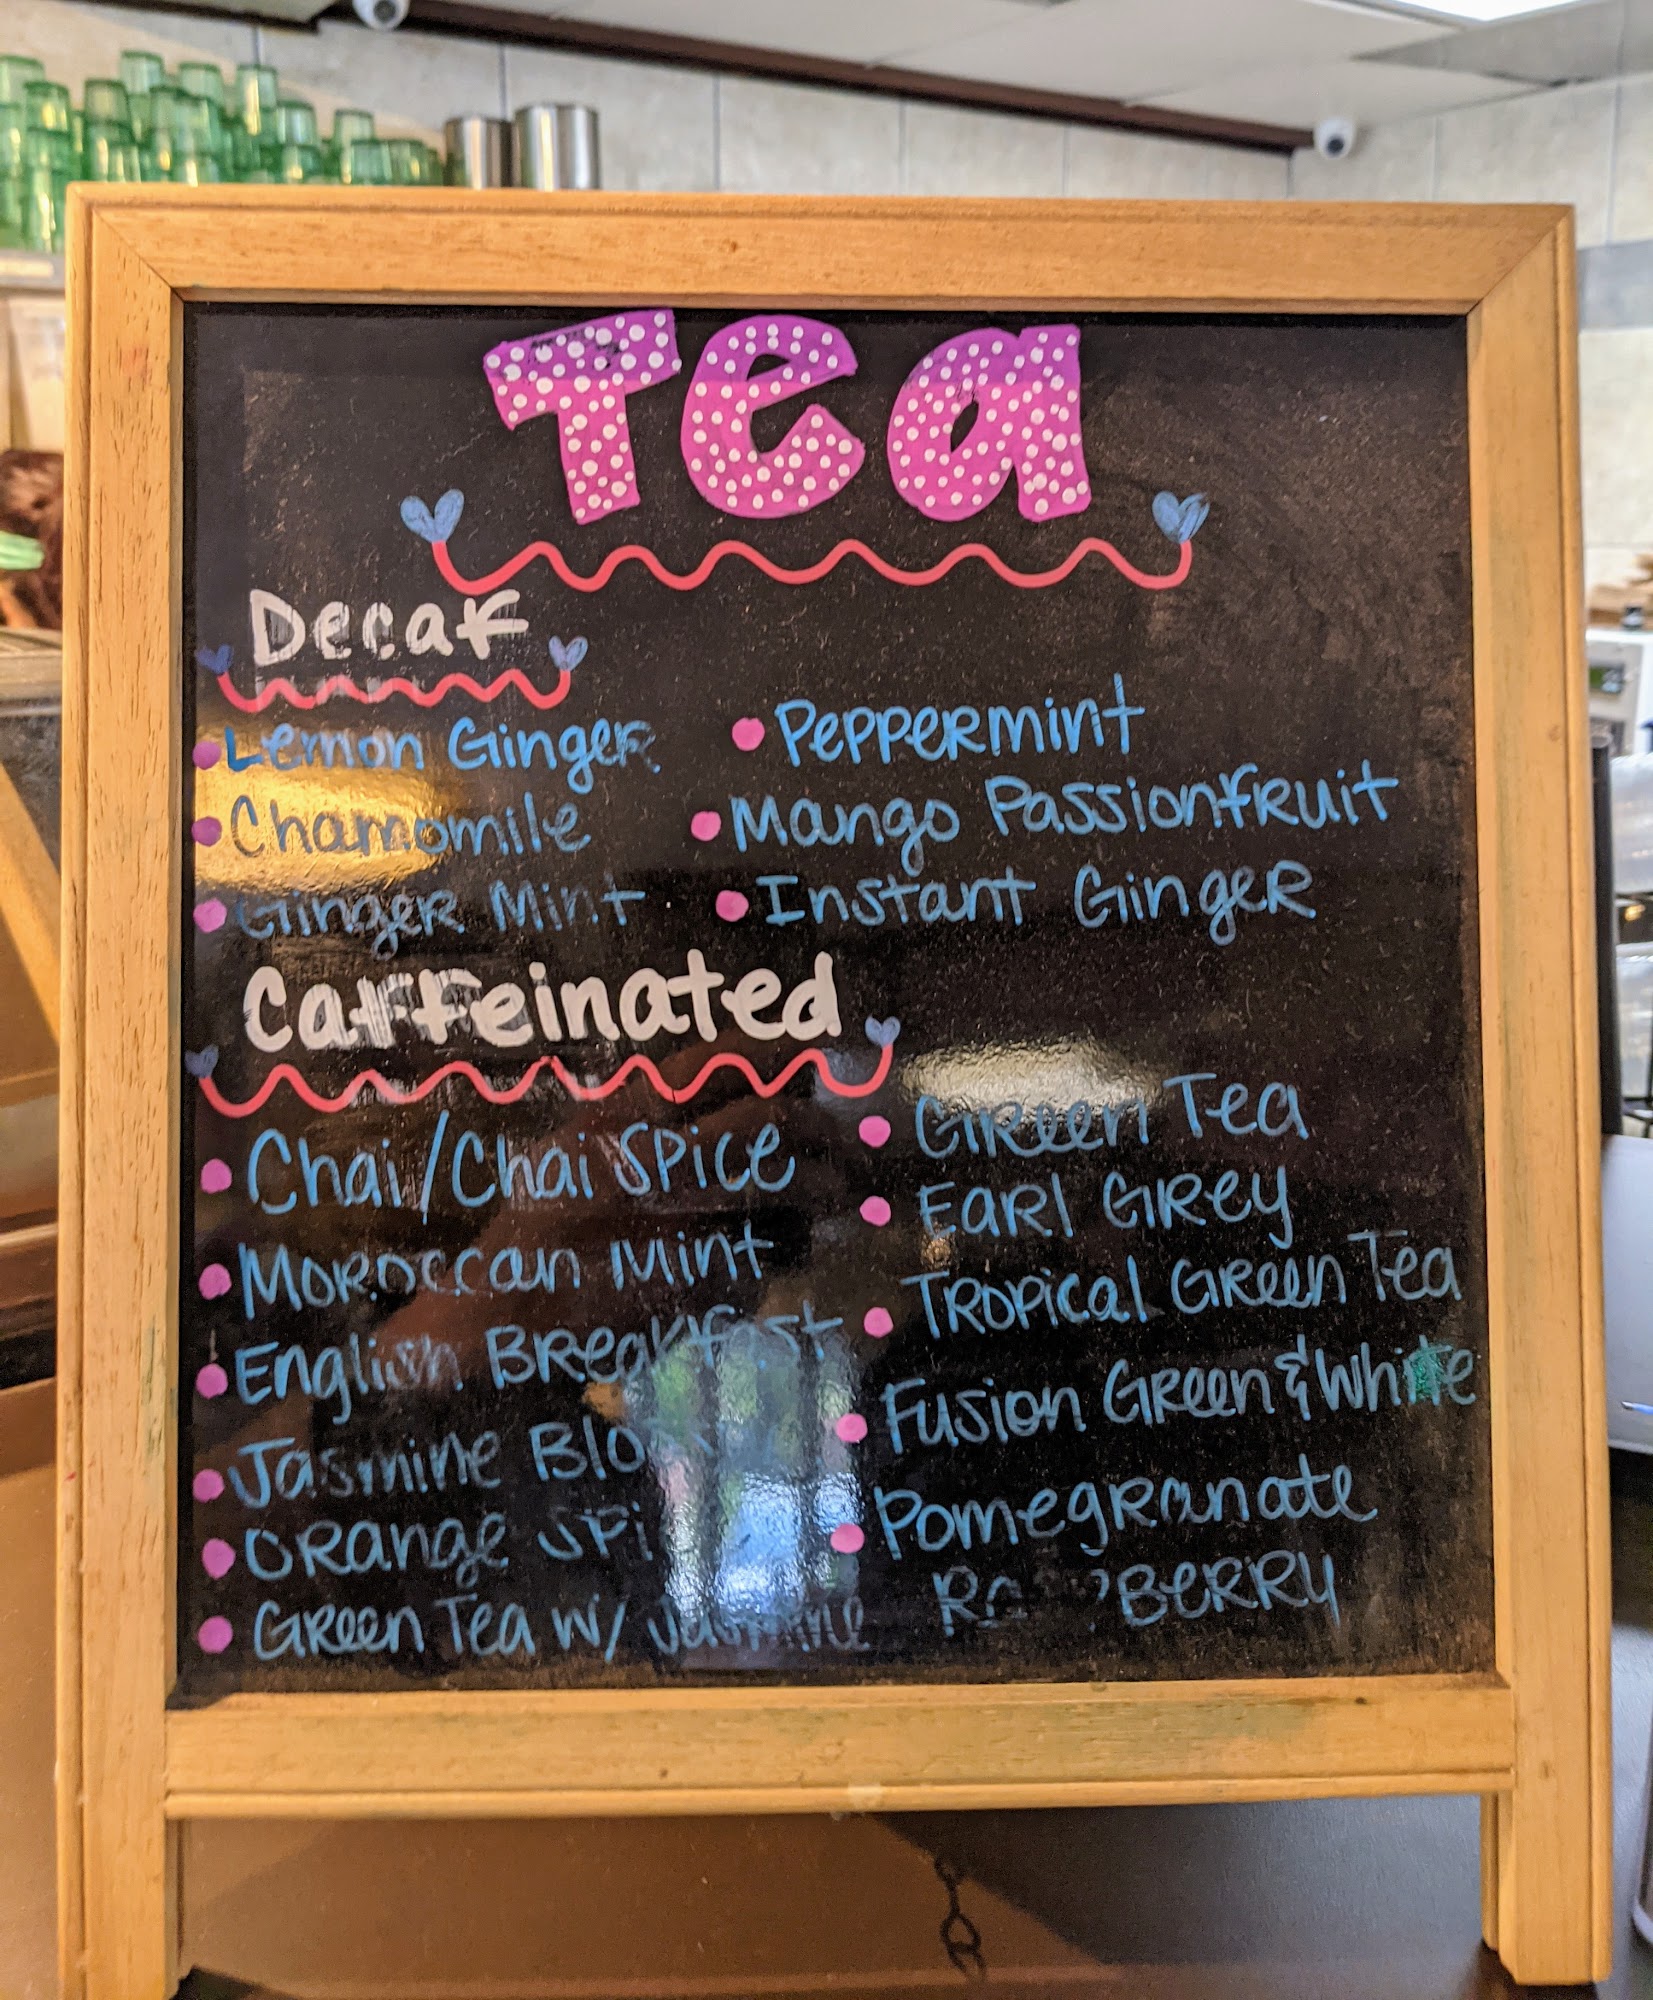 Tea
Decaf
Lemon Ginger
Chamomile
Ginger Mint
Peppermint
Mango Passionfruit
Instant Ginger
Caffeinated
Chai/Chai Spice
Moroccan Mint
English Breakfast
Jasmine
Orange
Green Tea w/ Jasmine
Green Tea
Earl Grey
Tropical Green Tea
Fusion Green & White
Pomegranate